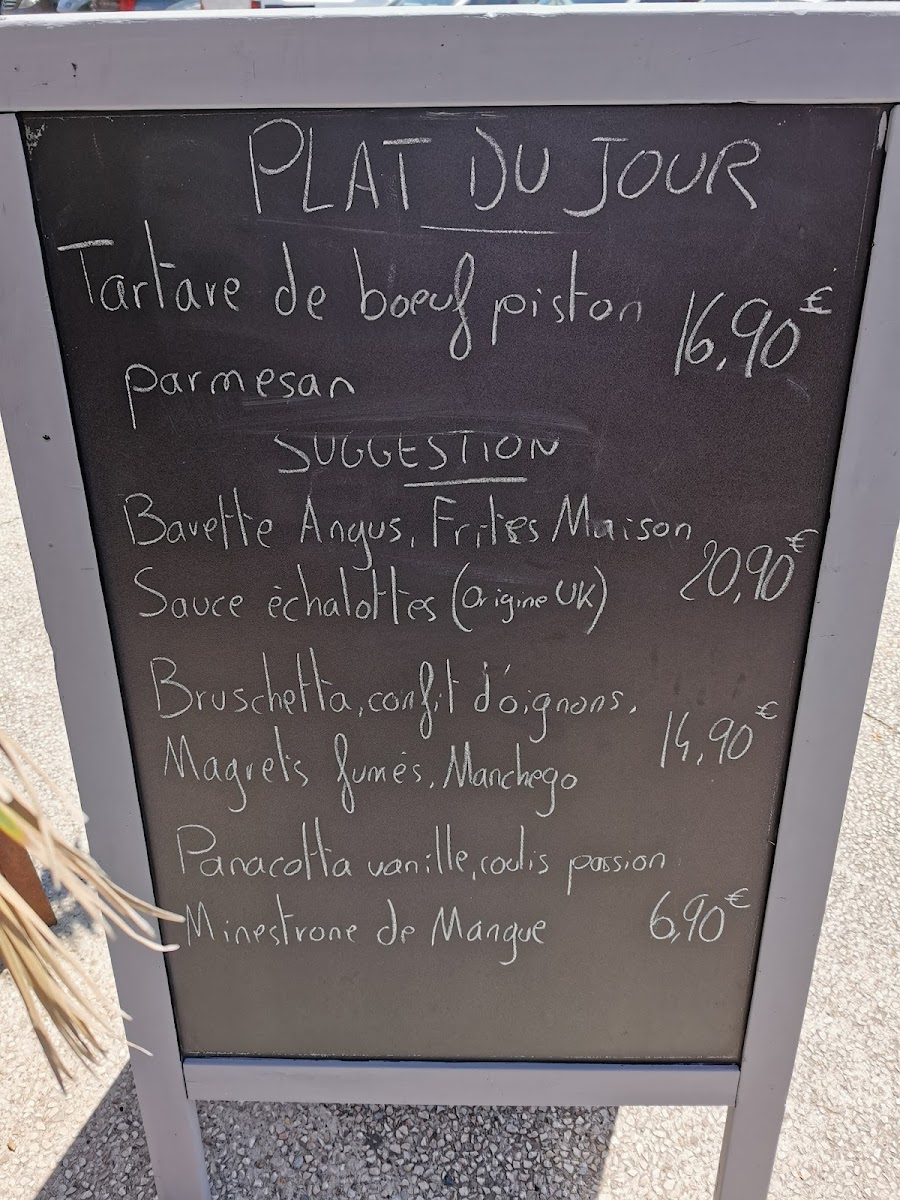 PLAT DU JOUR
Tartare de boeuf piston 16,90€
parmesan
SUGGESTION
Bavette Angus, Frites Maison
Sauce échalottes (Origine UK) 20,90€
Bruschetta, confit d'oignons,
Magrets fumés, Manchego 14,90€
Panacotta vanille, coulis passion
Minestrone de Mangue 6,90€